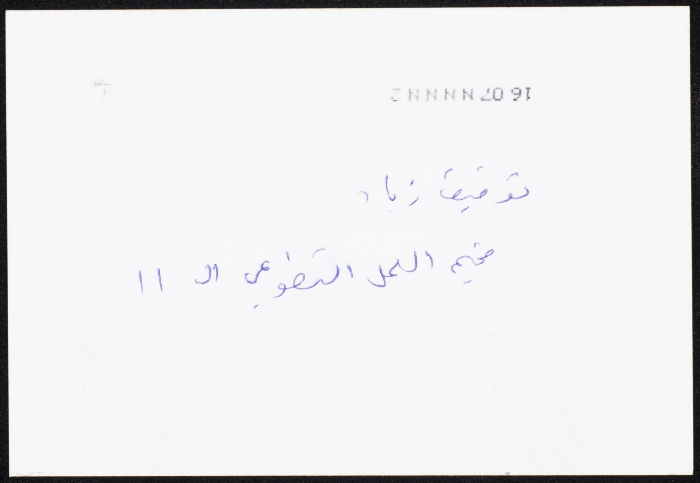 16 07 NNNNN 2
توفيق زياد
مخيم العمل التطوعي ال 11